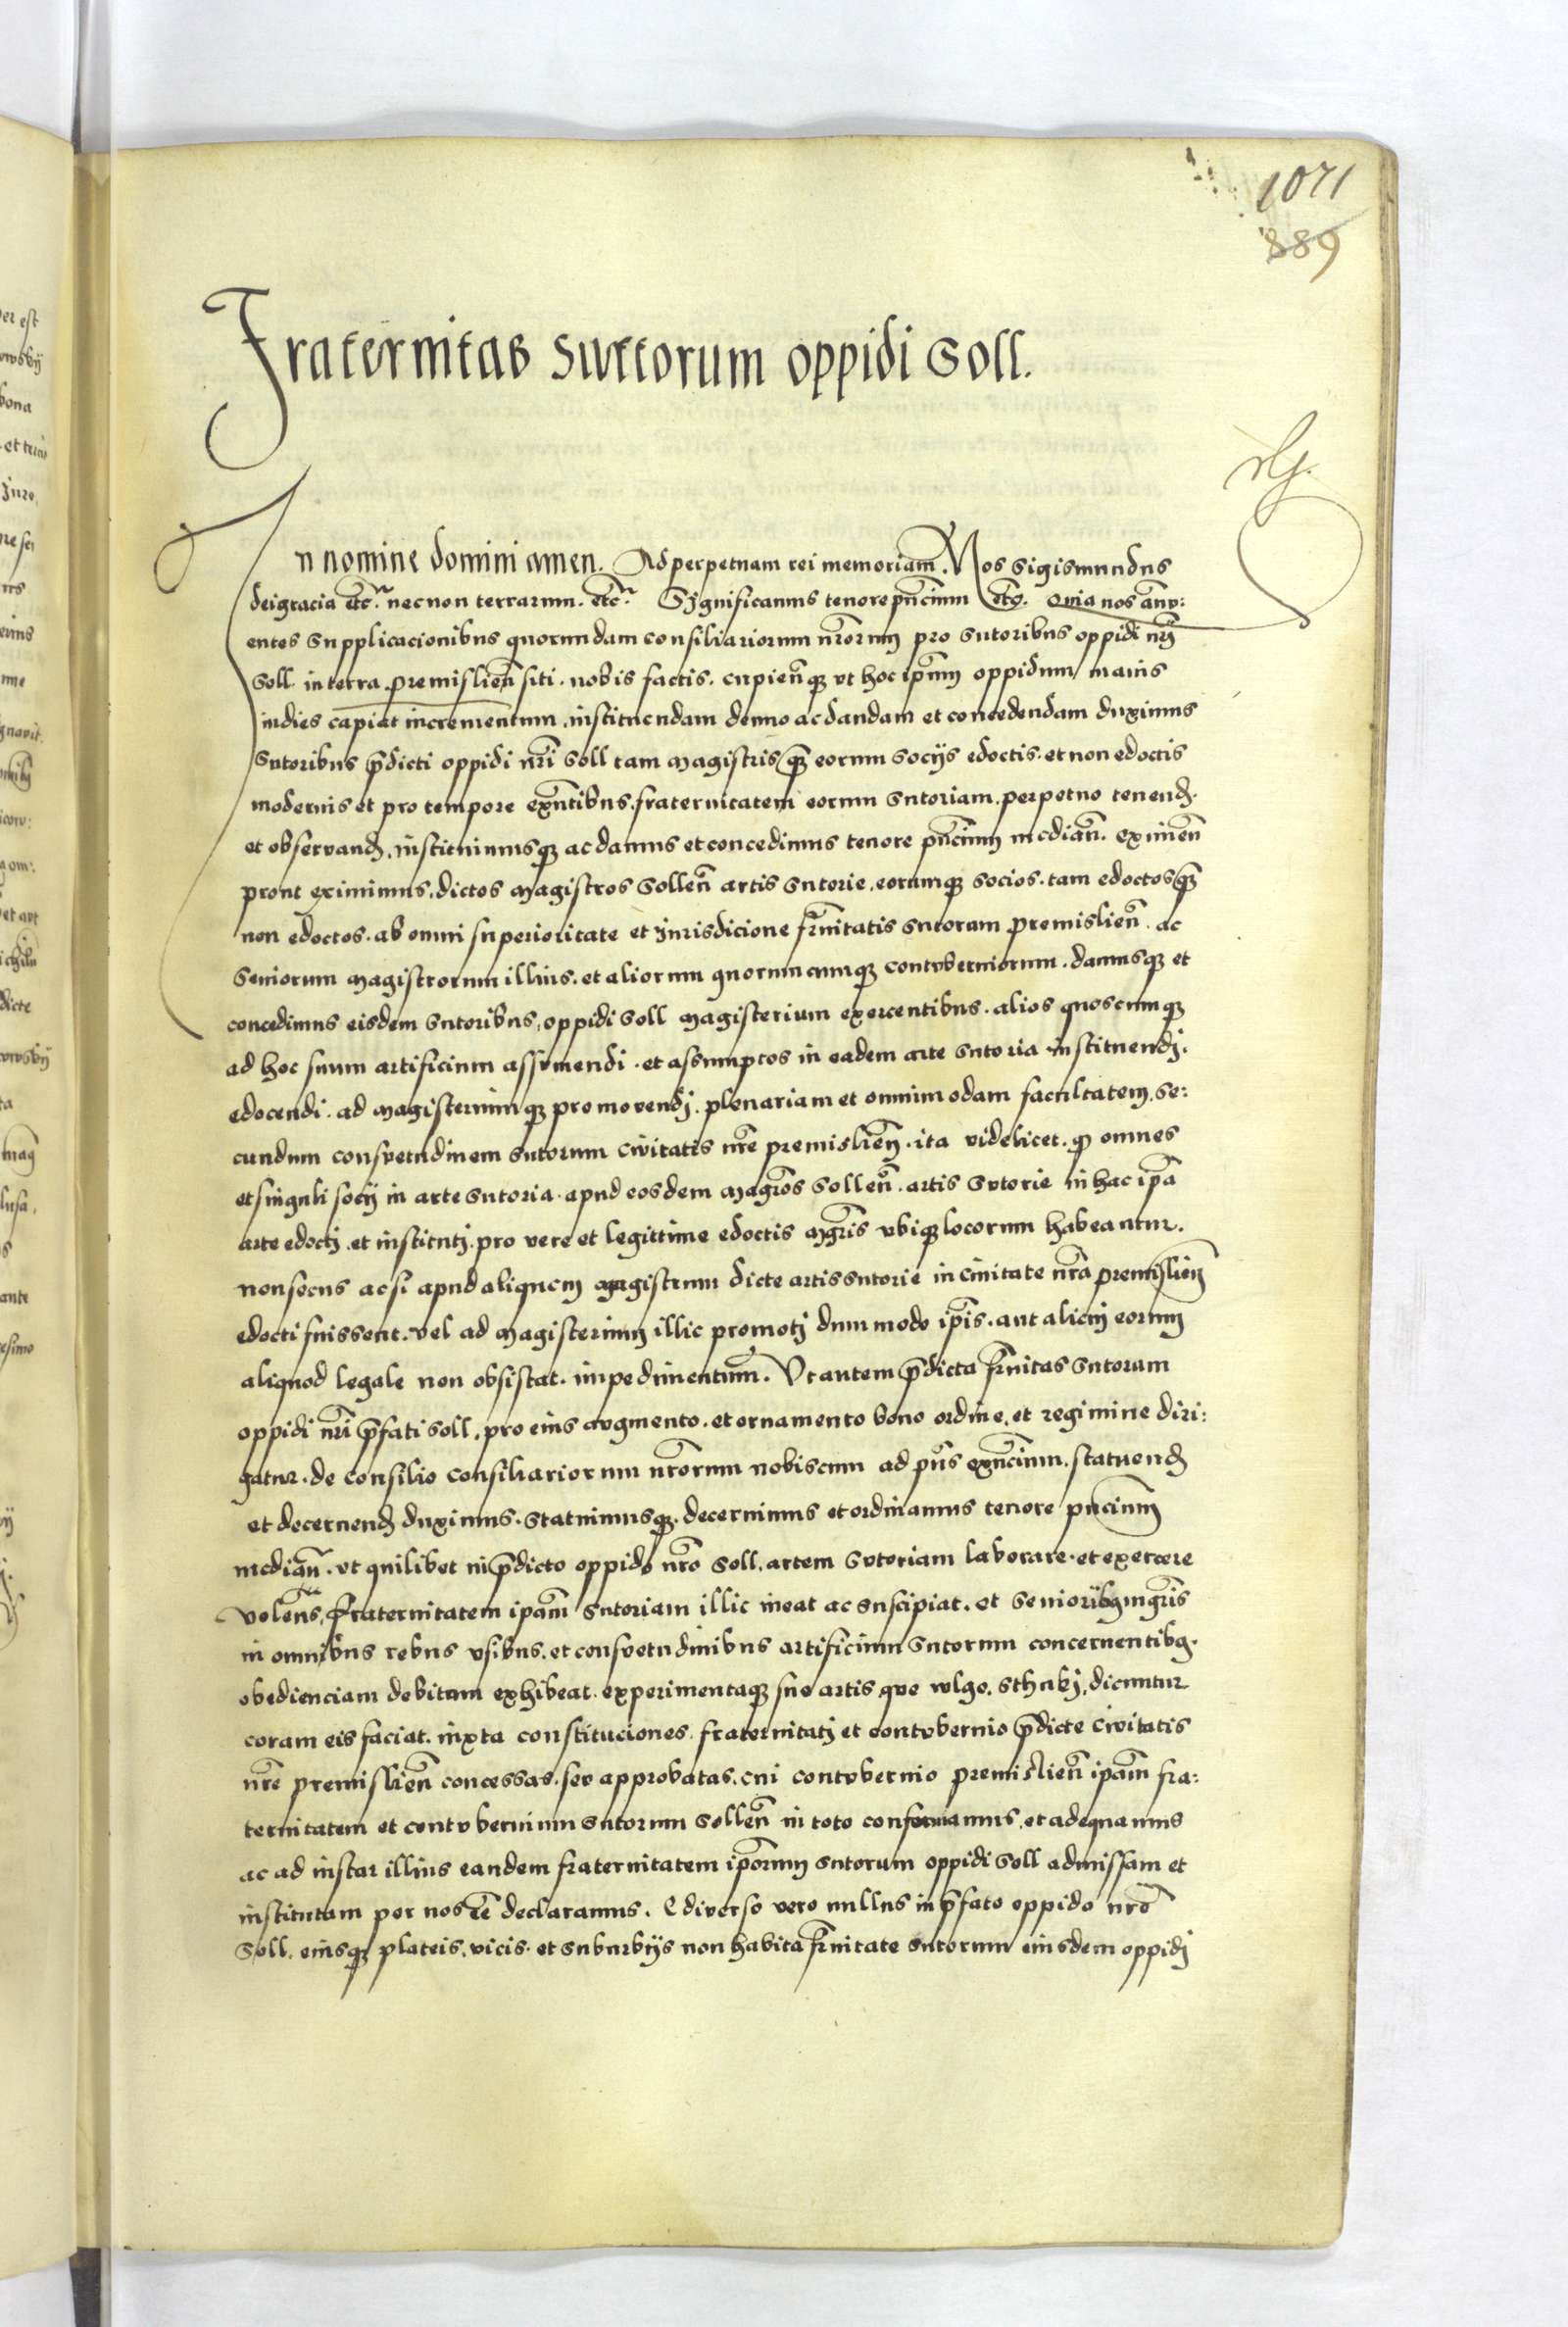 1071
889
Fraternitas suttorum oppidi Soll.
In nomine domini amen. Ad perpetuam rei memoriam. Nos Sigismundus
deigracia etc. necnon terrarum. etc. Significamus tenore pñcium etc. Quia nos annu:
entes supplicacionibus quorundam consiliariorum nr̃orum pro sutoribus oppidi nr̃j
Soll in terra premislieñ siti. nobis factis. cupieñq; vt hoc ip̃um oppidum maius
indies capiat incrementum. instituendam denuo ac dandam et concedendam duximus
Sutoribus p̃dicti oppidi nr̃i Soll tam magistris q̃ eorum socijs edoctis. et non edoctis
modernis et pro tempore exñtibus. fraternitatem eorum sutoriam. perpetuo tenend.
et observand. instituimusq; ac damus et concedimus tenore pñcium mediañ. eximeñ
prout eximimus. dictos magistros Solleñ artis sutorie. eorumq; socios. tam edoctos q̃
non edoctos. ab omni superioritate et Jurisdicione fr̃nitatis sutorum premislieñ. ac
Seniorum magistrorum illius. et aliorum quorumcumq; contuberniorum. damusq; et
concedimus eisdem sutoribus, oppidi Soll magisterium exercentibus. alios quoscumq;
ad hoc suum artificium assumendi. et assumptos in eadem arte sutoria instituendj.
edocendi. ad magisteriumq; promovendj. plenariam et omnimodam facultatem. se:
cundum consvetudinem sutorum civitatis nr̃e premislieñ. ita videlicet. q omnes
et singuli socij in arte sutoria. apud eosdem magr̃os Solleñ. artis sutorie in hac ip̃a
arte edoctj. et institutj. pro vere et legittime edoctis mgr̃is vbiq; locorum habeantur.
non secus ac si apud aliquem magistrum dicte artis sutorie in civitate nr̃a premislieñ
edocti fuissent. vel ad magisterium illic promotj dummodo ip̃is. aut alicuj eorum
aliquod legale non obsistat. impedimentum. Vt autem p̃dicta fr̃nitas sutorum
oppidi nr̃i p̃fati Soll, pro eius augmento. et ornamento bono ordine, et regimine diri:
gatur. de consilio consiliariorum nr̃orum nobiscum ad pñs exñcium. statuend
et decernend duximus. Statuimusq;. decernimus et ordinamus tenore pñcium
mediañ. vt quilibet in p̃dicto oppido nr̃o Soll. artem sutoriam laborare. et exercere
volens, fraternitatem ipam̃ sutoriam illic ineat ac suscipiat. et seniorib9 mgr̃is
in omnibus rebus vsibus. et consvetudinibus artificium sutorum concernentib9.
obedienciam debitam exhibeat. experimentaq; sue artis, que vulgo. sthukj, dicuntur
coram eis faciat. iuxta constituciones. fraternitatj et contubernio p̃dicte civitatis
nr̃e premislieñ concessas. seu approbatas. cui contubernio premislieñ ipam̃ fra:
ternitatem et contubernium sutorum Solleñ in toto conformamus. et adequamus
ac ad instar illius eandem fraternitatem ip̃orum sutorum oppidi Soll admissam et
institutam per nos ee declaramus. E diverso vero nullus in p̃fato oppido nr̃o
Soll. eiusq; plateis. vicis. et suburbijs non habita fr̃nitate sutorum eiusdem oppidj